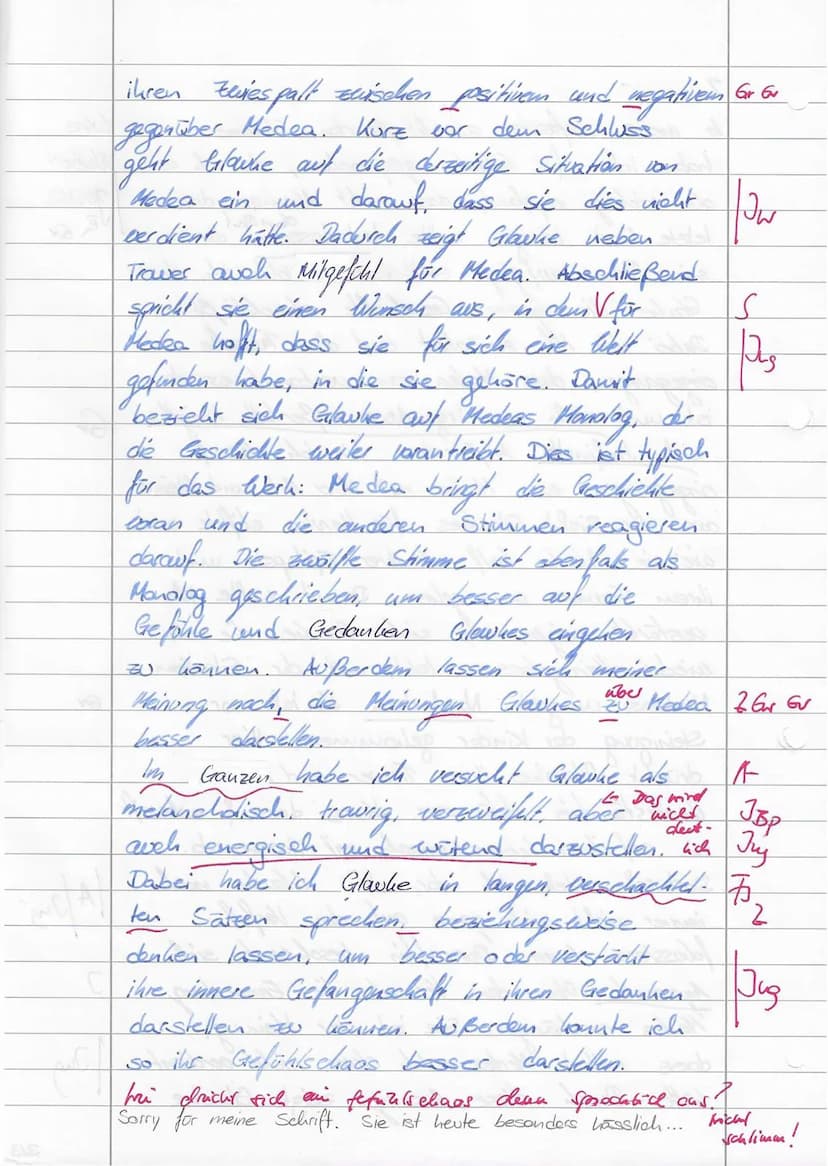 ihren Zwiespalt zwischen positivem und negativem Gr Gr
gegenüber Medea. Kurz vor dem Schluss
geht Glauke auf die derzeitige Situation von
Medea ein und darauf, dass sie dies nicht
verdient hätte. Dadurch zeigt Glauke neben
Trauer auch Mitgefühl für Medea. Abschließend
spricht sie einen Wunsch aus, in dem V für S
Medea hofft, dass sie für sich eine Welt
gefunden habe, in die sie gehöre. Damit
bezieht sich Glauke auf Medeas Monolog, der
die Geschichte weiter vorantreibt. Dies ist typisch
für das Werk: Medea bringt die Geschichte
voran und die anderen Stimmen reagieren
darauf. Die zwölfte Stimme ist ebenfalls als
Monolog geschrieben, um besser auf die
Gefühle und Gedanken Glaukes eingehen
zu können. Außerdem lassen sich meiner
über
Meinung nach, die Meinungen Glaukes zu Medea Z Gr Gr
besser darstellen.
Im Ganzen habe ich versucht Glauke als A
melancholisch, traurig, verzweifelt, aber
← Das wird nicht deut-lich
auch energisch und wütend darzustellen.
Dabei habe ich Glauke in langen, verschachtel-
ten Sätzen sprechen, beziehungsweise Z
denken lassen, um besser oder verstärkt
ihre innere Gefangenschaft in ihren Gedanken
darstellen zu können. Außerdem konnte ich
so ihr Gefühlschaos besser darstellen.
Wie drückt sich ein Gefühlschaos denn sprachlich aus?
Sorry für meine Schrift. Sie ist heute besonders hässlich...
Nicht schlimm!